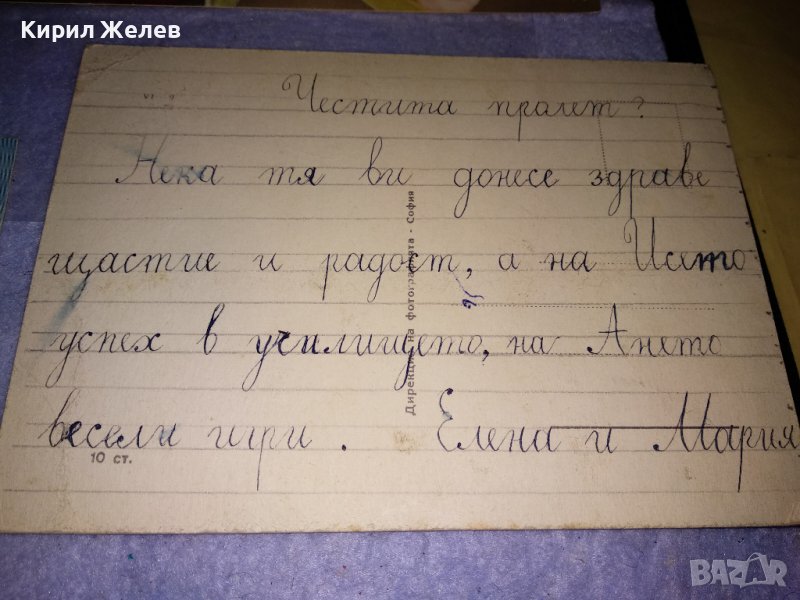 Кирил Желев
Честита пролет?
Нека тя ви донесе здраве
щастие и радост, а на
успех в училището, на Ането
весели игри. Елена и Мария
10 ст.
Дирекция на фотографията - София
BAZAR